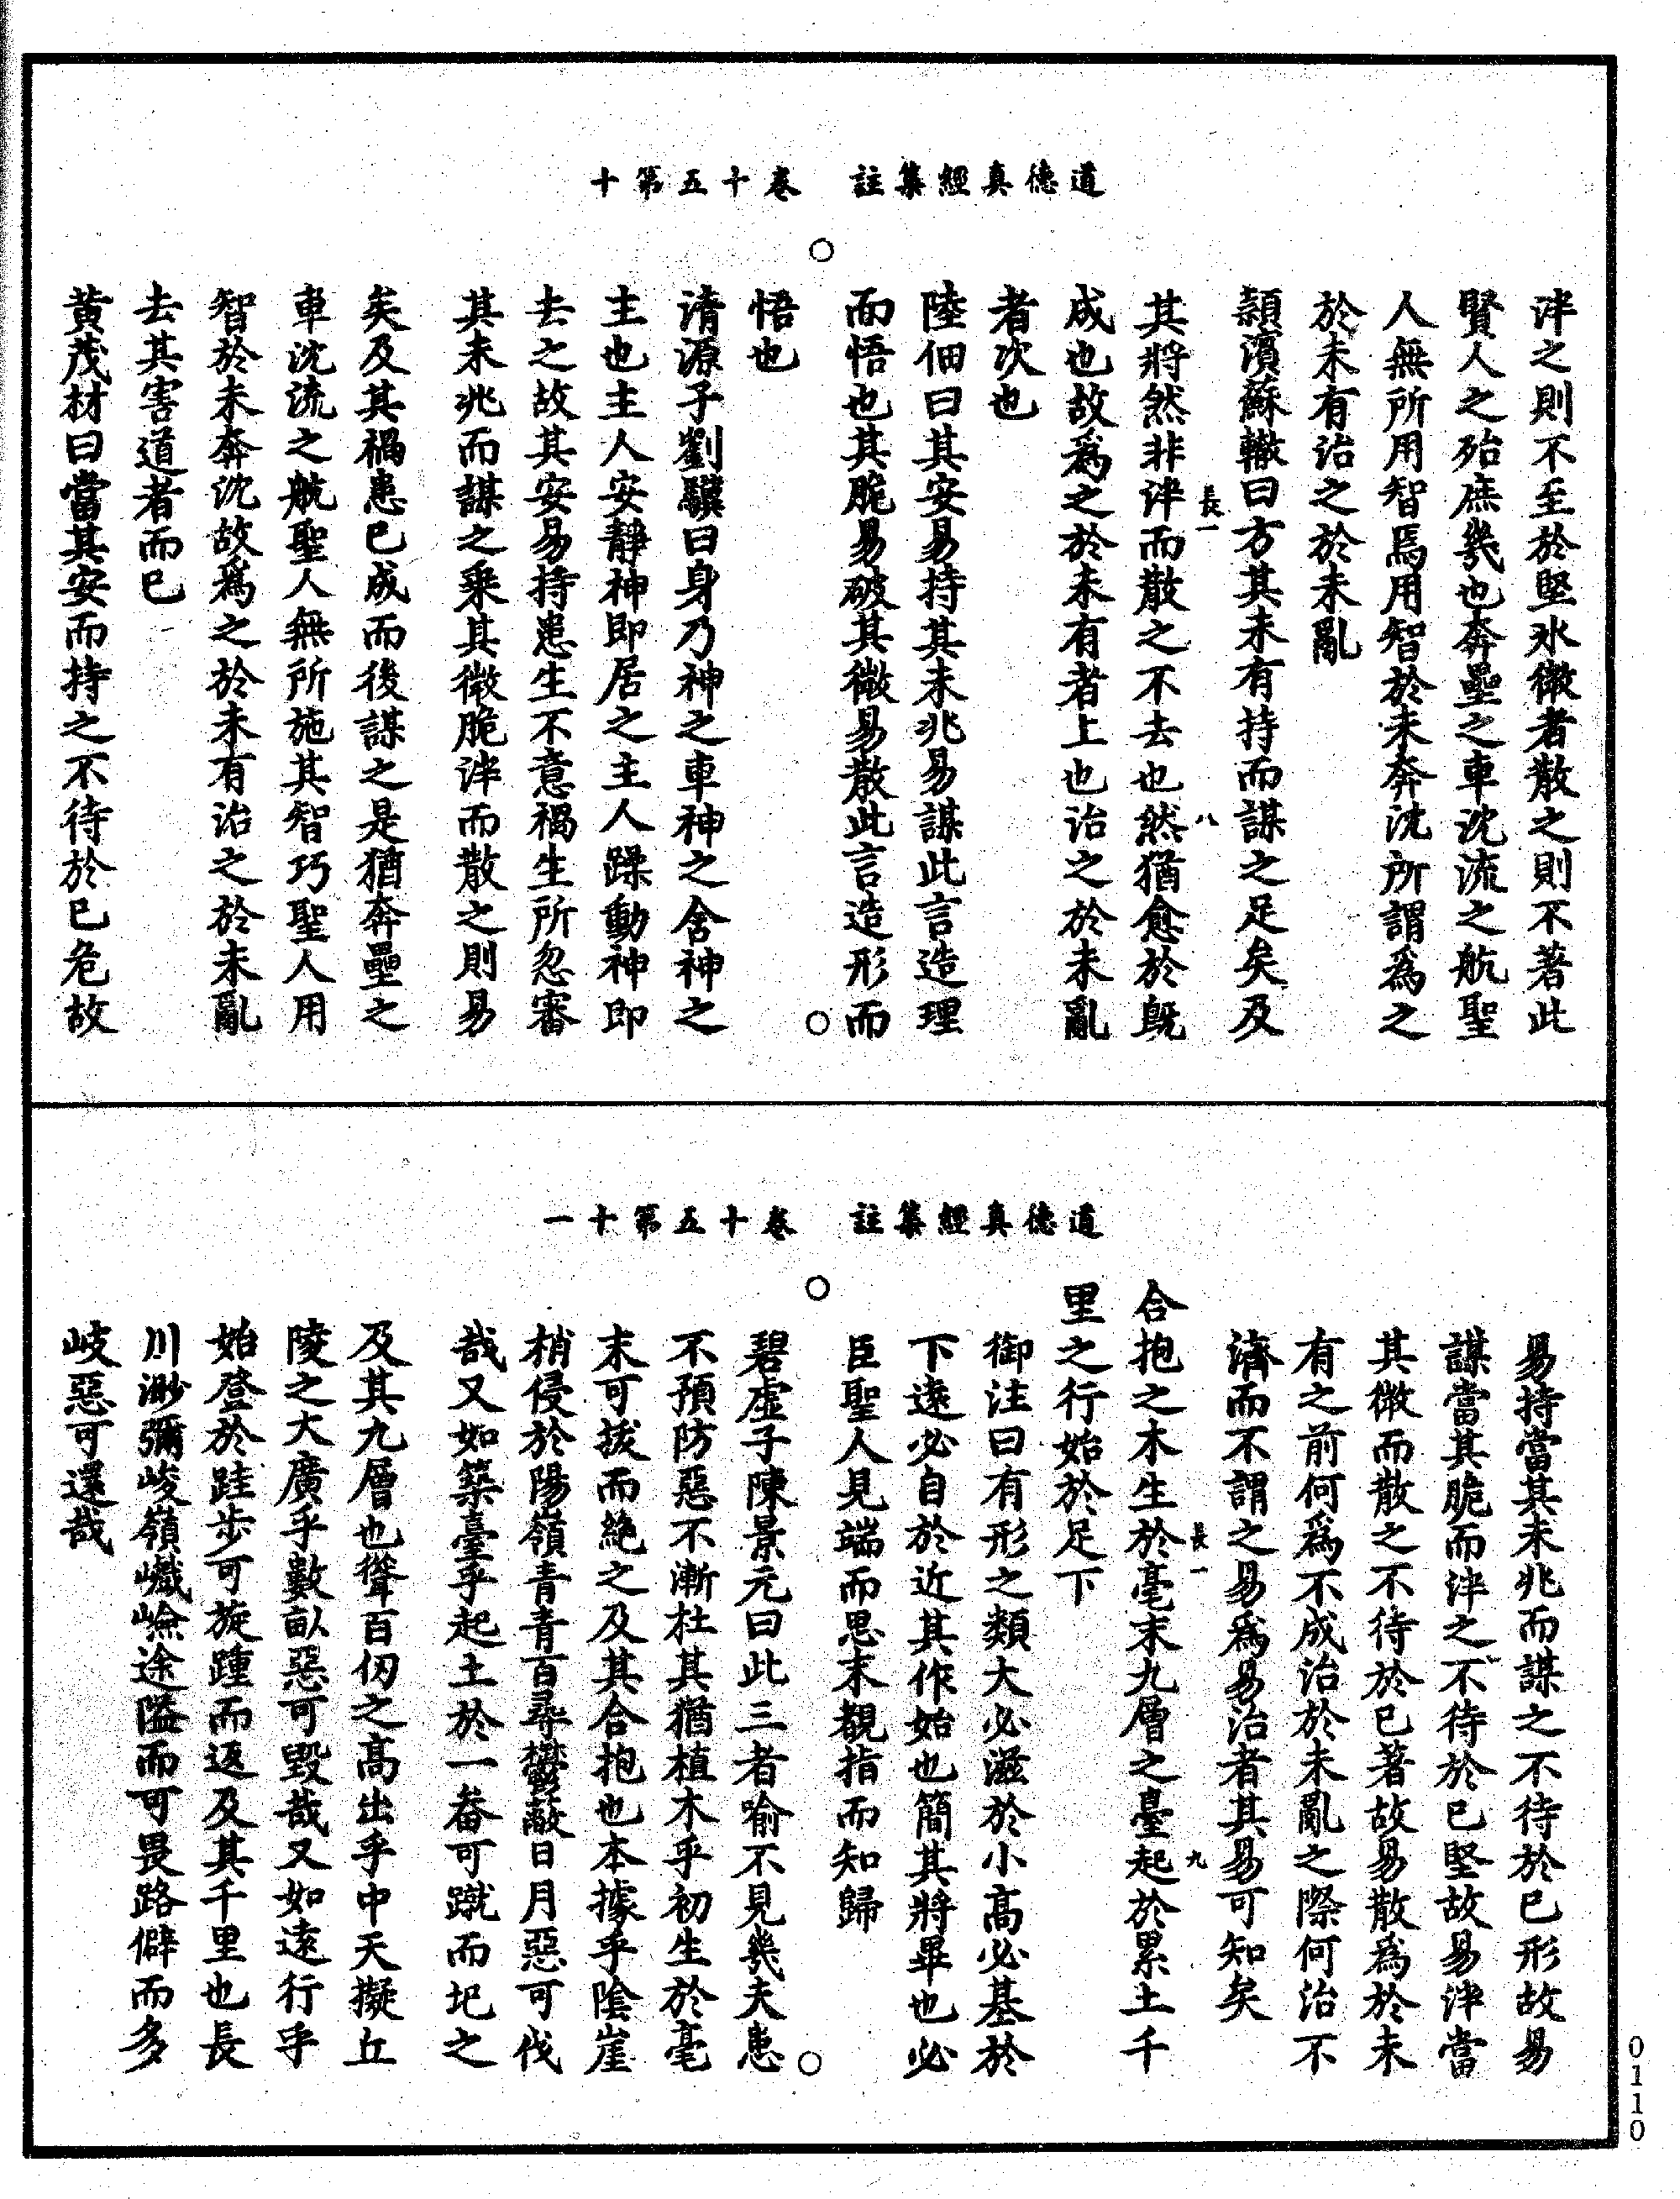 道德真經集註　卷十五第十
泮之則不至於堅冰微者散之則不著此
賢人之殆庶幾也奔壘之車沈流之航聖
人無所用智焉用智於未奔沈所謂爲之
於未有治之於未亂
頴濱蘇轍曰方其未有持而謀之足矣及
長一　八
其將然非泮而散之不去也然猶愈於旣
成也故爲之於未有者上也治之於未亂
者次也
陸佃曰其安易持其未兆易謀此言造理
而悟也其脆易破其微易散此言造形而
悟也
清源子劉驥曰身乃神之車神之舍神之
主也主人安靜神即居之主人躁動神即
去之故其安易持患生不意禍生所忽審
其未兆而謀之乘其微脆泮而散之則易
矣及其禍患已成而後謀之是猶奔壘之
車沈流之航聖人無所施其智巧聖人用
智於未奔沈故爲之於未有治之於未亂
去其害道者而已
黄茂材曰當其安而持之不待於已危故
道德真經集註　卷十五第十一
易持當其未兆而謀之不待於已形故易
謀當其脆而泮之不待於已堅故易泮當
其微而散之不待於已著故易散爲於未
有之前何爲不成治於未亂之際何治不
濟而不謂之易爲易治者其易可知矣
長一　九
合抱之木生於毫末九層之臺起於累土千
里之行始於足下
御注曰有形之類大必滋於小高必基於
下遠必自於近其作始也簡其將畢也必
臣聖人見端而思末覩指而知歸
碧虛子陳景元曰此三者喻不見幾夫患
不預防惡不漸杜其猶植木乎初生於毫
末可拔而絶之及其合抱也本據乎陰崖
梢侵於陽嶺青青百尋欝蔽日月惡可伐
哉又如築臺乎起土於一畚可蹴而圮之
及其九層也聳百仞之高出乎中天擬丘
陵之大廣乎數畝惡可毀哉又如遠行乎
始登於跬步可旋踵而返及其千里也長
川渺瀰峻嶺巇嶮途隘而可畏路僻而多
岐惡可還哉
0110